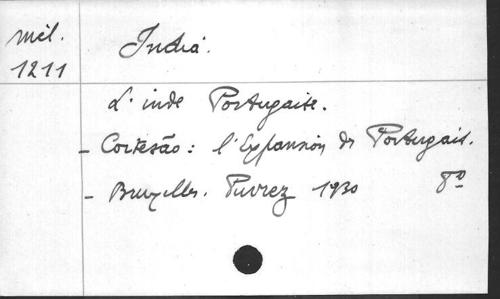 Mél.
1211
India.
L'inde Portugaise.
- Cortesão: l'Expansion des Portugais.
- Bruxelles. Puvrez 1930 8º